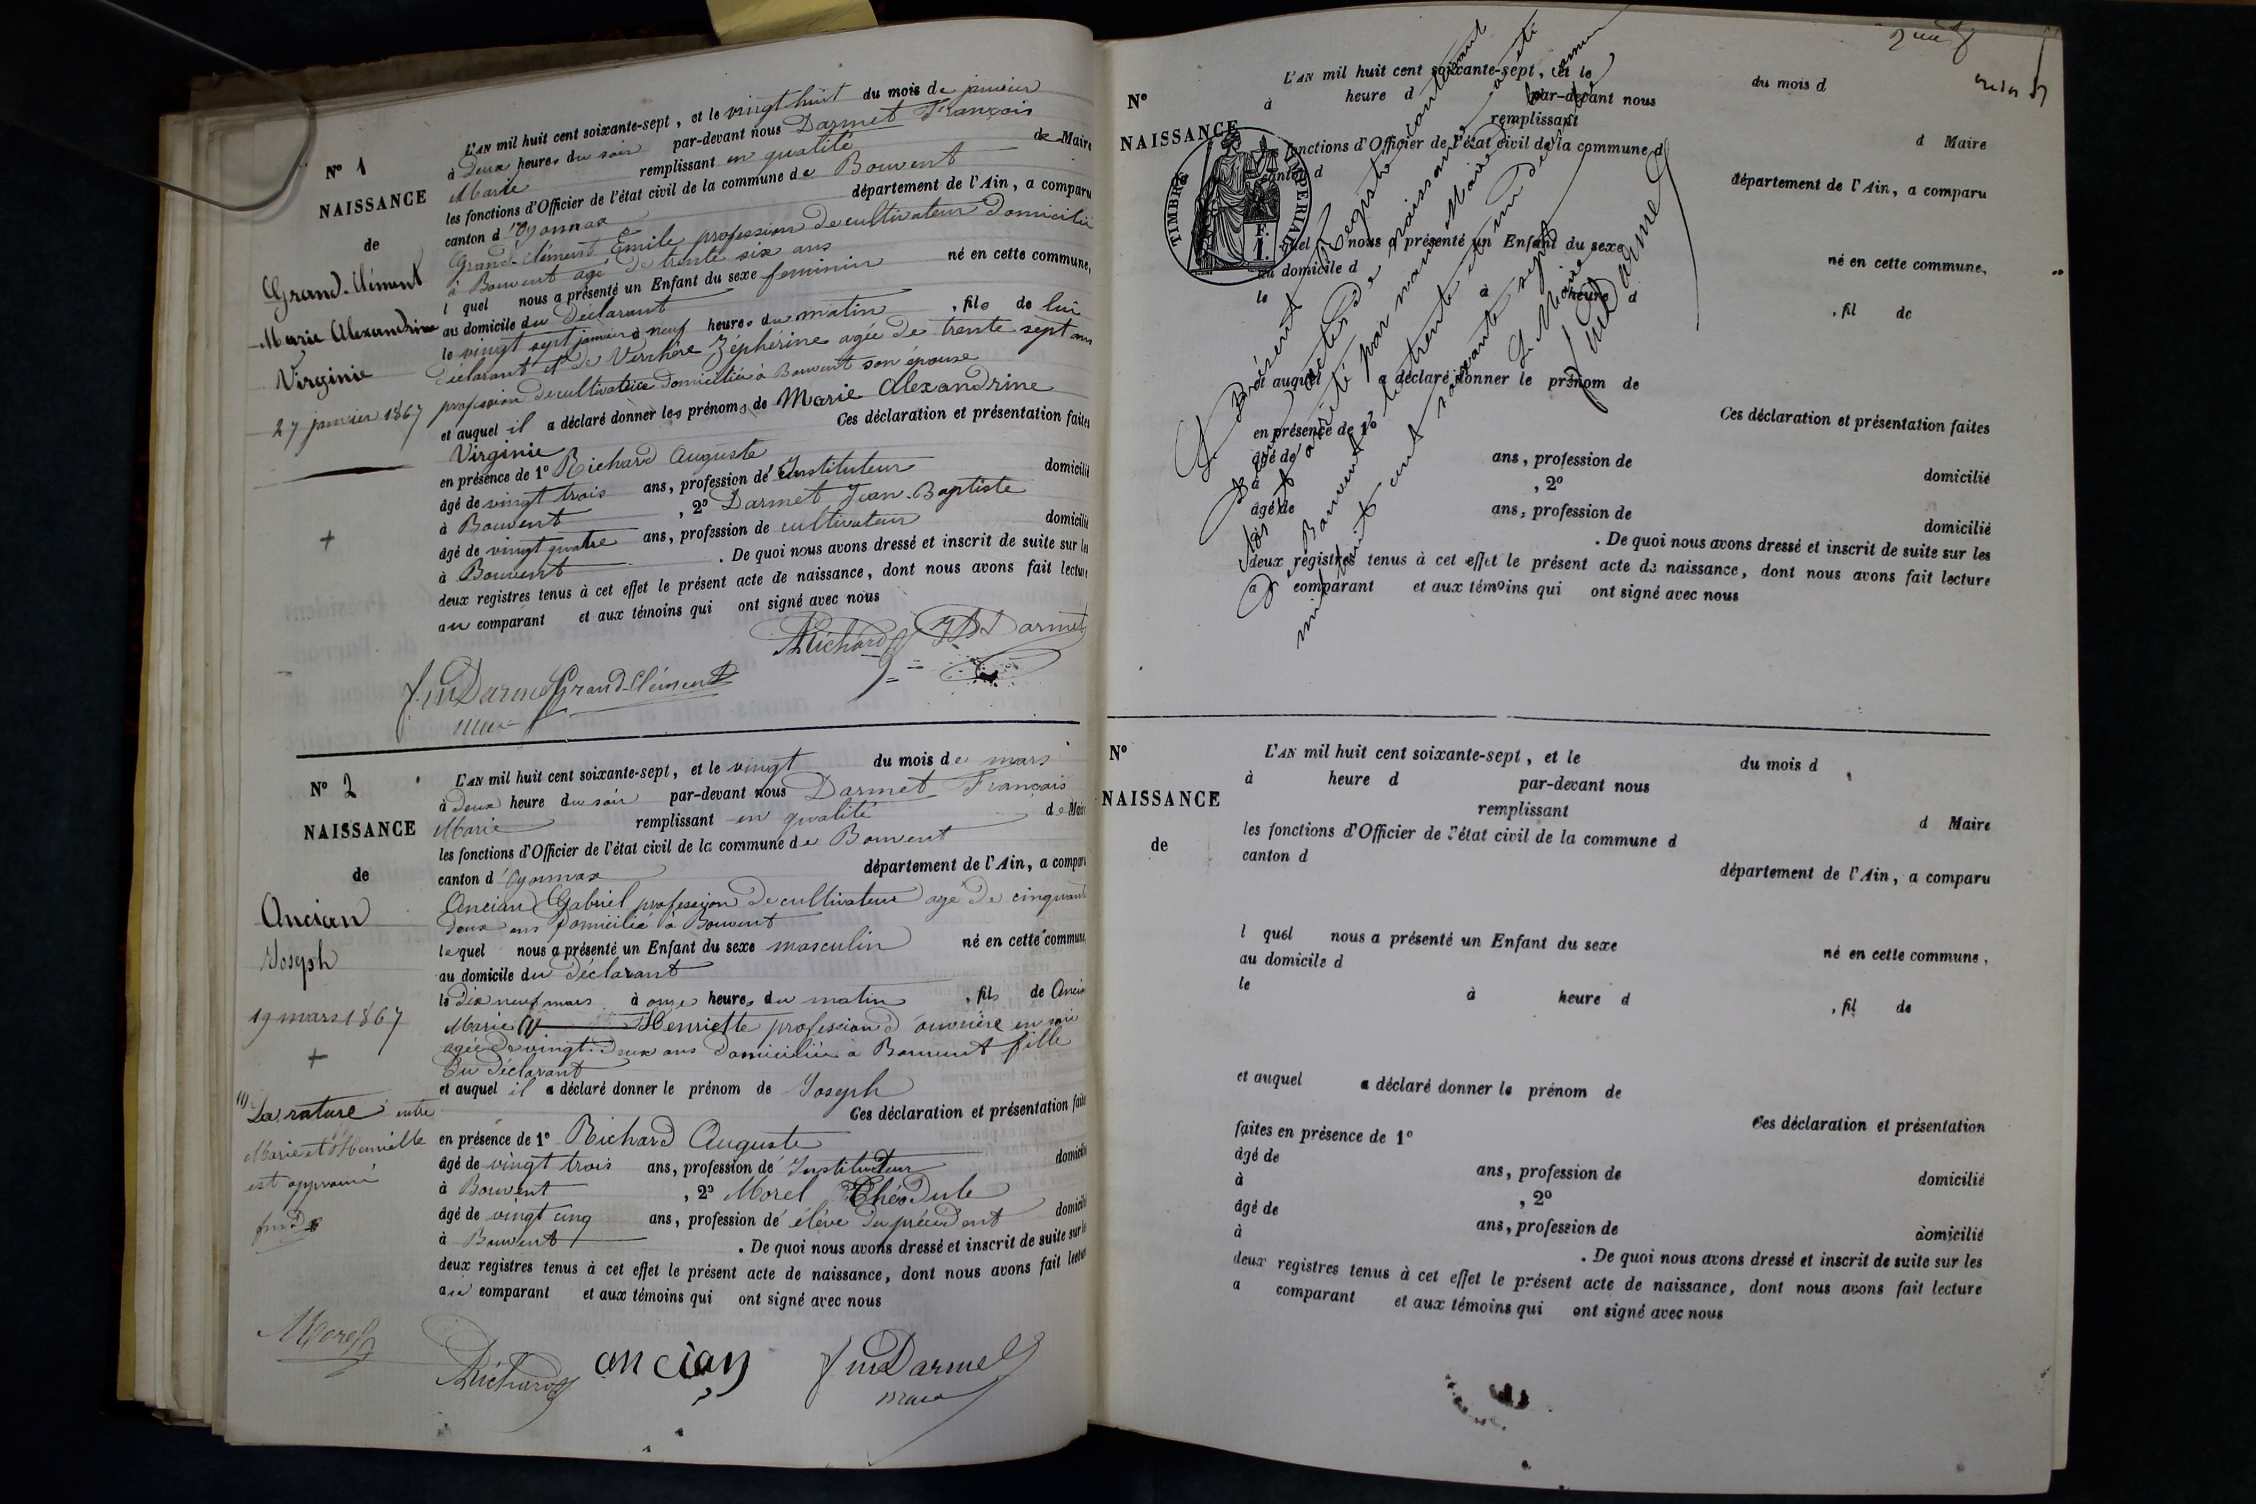 N° 1
NAISSANCE
de
Grand-Clément
Marie Alexandrine
Virginie
27 janvier 1867
L'AN mil huit cent soixante-sept, et le vingt huit du mois de janvier
à Deux heures du soir par-devant nous Darmet François
Marie remplissant en qualité de Maire
les fonctions d'Officier de l'état civil de la commune de Bouvent
canton d'Oyonnax département de l'Ain, a comparu
Grand-Clément Emile profession de cultivateur domicilié
à Bouvent agé de trente six ans
l quel nous a présenté un Enfant du sexe feminin né en cette commune,
au domicile du Déclarant
le vingt sept janvier à neuf heures du matin, fils de lui
Déclarant et de Verchère Zéphérine agée de trente sept ans
profession de cultivatrice domiciliée à Bouvent son épouse
et auquel il a déclaré donner les prénoms de Marie Alexandrine
Virginie Ces déclaration et présentation faites
en présence de 1° Richard Auguste
âgé de vingt trois ans, profession d'Instituteur domicilié
à Bouvent, 2° Darmet Jean-Baptiste
âgé de vingt quatre ans, profession de cultivateur domicilié
à Bouvent. De quoi nous avons dressé et inscrit de suite sur les
deux registres tenus à cet effet le présent acte de naissance, dont nous avons fait lecture
au comparant et aux témoins qui ont signé avec nous
Richard JB Darmet
f.m Darmet Grand-Clément
N° 2
NAISSANCE
de
Ancian
Joseph
19 mars 1867
(1) La rature entre
Marie et Henriette
est approuvé
L'AN mil huit cent soixante-sept, et le vingt du mois de mars
à deux heure du soir par-devant nous Darmet François
Marie remplissant en qualité de Maire
les fonctions d'Officier de l'état civil de la commune de Bouvent
canton d'Oyonnax département de l'Ain, a comparu
Ancian Gabriel profession de cultivateur agé de cinquante
deux ans domicilié à Bouvent
lequel nous a présenté un Enfant du sexe masculin né en cette commune,
au domicile du Déclarant
le dix neuf mars à onze heures du matin, fils de Ancian
Marie (1) Henriette profession d'ouvrière en soie
agée de vingt-deux ans domiciliée à Bouvent fille
du déclarant
et auquel il a déclaré donner le prénom de Joseph
Ces déclaration et présentation faites
en présence de 1° Richard Auguste
âgé de vingt trois ans, profession d'Instituteur domicilié
à Bouvent, 2° Morel Théodule
âgé de vingt cinq ans, profession d'élève du précédent domicilié
à Bouvent. De quoi nous avons dressé et inscrit de suite sur les
deux registres tenus à cet effet le présent acte de naissance, dont nous avons fait lecture
au comparant et aux témoins qui ont signé avec nous
Morel
Richard ancian f m Darmet
maire
N°
NAISSANCE
TIMBRE IMPERIAL
1 F.
L'AN mil huit cent soixante-sept, et le du mois d
à heure d par-devant nous
remplissant d Maire
les fonctions d'Officier de l'état civil de la commune d
canton d département de l'Ain, a comparu
l quel nous a présenté un Enfant du sexe né en cette commune,
au domicile d
le à heure d, fil de
et auquel a déclaré donner le prénom de
Ces déclaration et présentation faites
en présence de 1°
âgé de ans, profession de domicilié
à, 2°
âgé de ans, profession de domicilié
à. De quoi nous avons dressé et inscrit de suite sur les
deux registres tenus à cet effet le présent acte de naissance, dont nous avons fait lecture
a comparant et aux témoins qui ont signé avec nous
Le Présent Registre contenant
deux actes de naissance a été
clos et arrêté par nous Maire de la commune
de Bouvent le trente et un décembre
mil huit cent soixante sept
Le Maire
f m Darmet
N°
NAISSANCE
de
L'AN mil huit cent soixante-sept, et le du mois d
à heure d par-devant nous
remplissant d Maire
les fonctions d'Officier de l'état civil de la commune d
canton d département de l'Ain, a comparu
l quel nous a présenté un Enfant du sexe né en cette commune,
au domicile d
le à heure d, fil de
et auquel a déclaré donner le prénom de
Ces déclaration et présentation
faites en présence de 1°
âgé de ans, profession de domicilié
à, 2°
âgé de ans, profession de domicilié
à. De quoi nous avons dressé et inscrit de suite sur les
deux registres tenus à cet effet le présent acte de naissance, dont nous avons fait lecture
a comparant et aux témoins qui ont signé avec nous